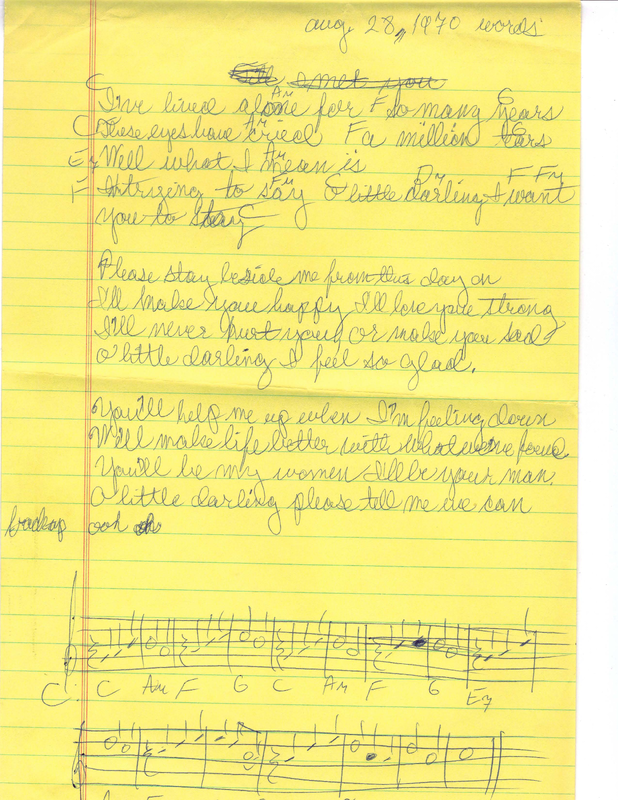 aug. 28, 1970 words
I met you
C Am F G
I've lived alone for so many years
C Am F G
These eyes have cried a million tears
Em Am
Well what I mean is
F Fm Dm F Fm
I'm trying to say O little darling I want
C
you to stay
Please stay beside me from this day on
I'll make you happy I'll love you strong
I'll never hurt you or make you sad
O little darling I feel so glad.
You'll help me up when I'm feeling down
We'll make life better with what we've found
You'll be my women I'll be your man.
O little darling please tell me we can
backup ooh
C C Am F G C Am F G Em